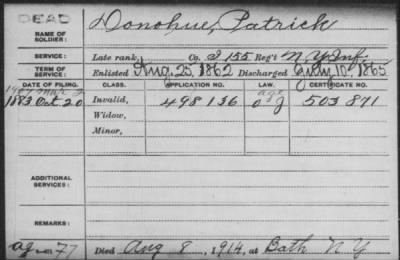 DEAD
NAME OF SOLDIER: Donohue, Patrick
SERVICE: Late rank, Co. I 155 Reg't N.Y. Inf.
TERM OF SERVICE: Enlisted Aug. 25, 1862 Discharged July 10, 1865
DATE OF FILING. CLASS. APPLICATION NO. LAW. CERTIFICATE NO.
1907 Mar age
1883 Oct 20 Invalid, 498136 503871
Widow,
Minor,
ADDITIONAL SERVICES:
REMARKS:
age 77 Died Aug 8, 1914, at Bath N Y